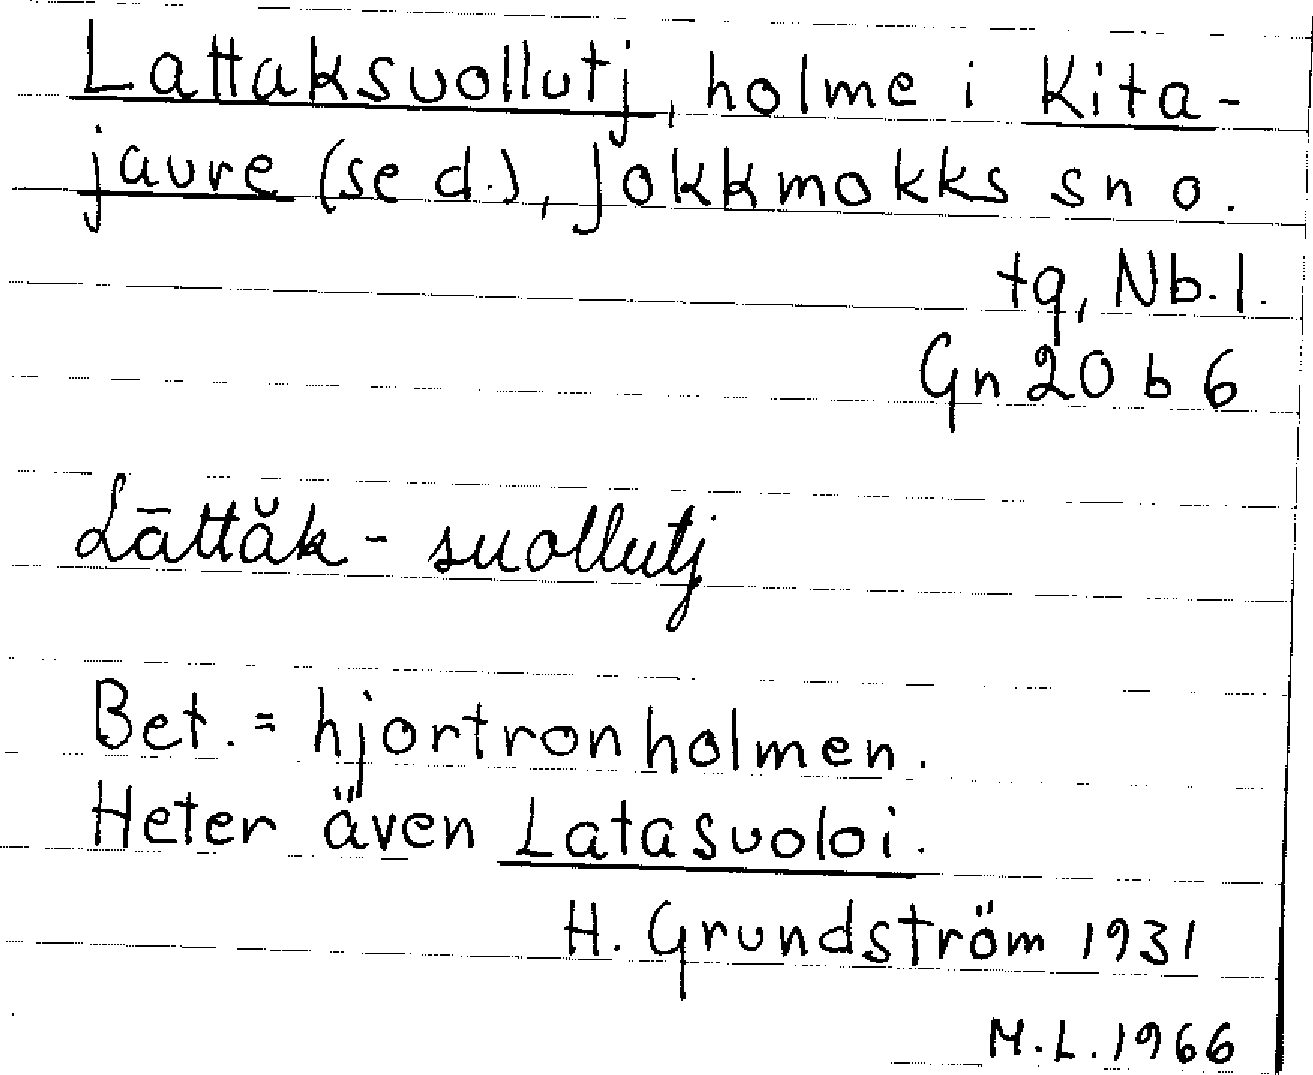 Lattaksuollutj, holme i Kita-
jaure (se d.), Jokkmokks sn o.
tg, Nb. l.
Gn 20 b 6
Lāttăk - suollutj
Bet. = hjortronholmen.
Heter även Latasuoloi.
H. Grundström 1931
M.L. 1966